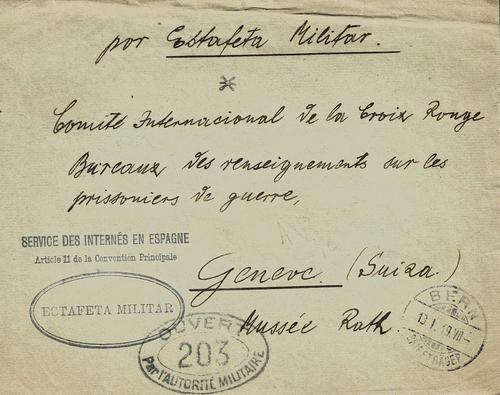 por Estafeta Militar.
Comité Internacional de la Croix Rouge
Bureaux des renseignements sur les
prissoniers de guerre,
SERVICE DES INTERNÉS EN ESPAGNE
Article 11 de la Convention Principale
Geneve. (Suiza.)
ESTAFETA MILITAR
Mussée Rath
OUVERT
203
Par l'AUTORITÉ MILITAIRE
BERN
13.I.19.VII-
BRIEFTRÄGER